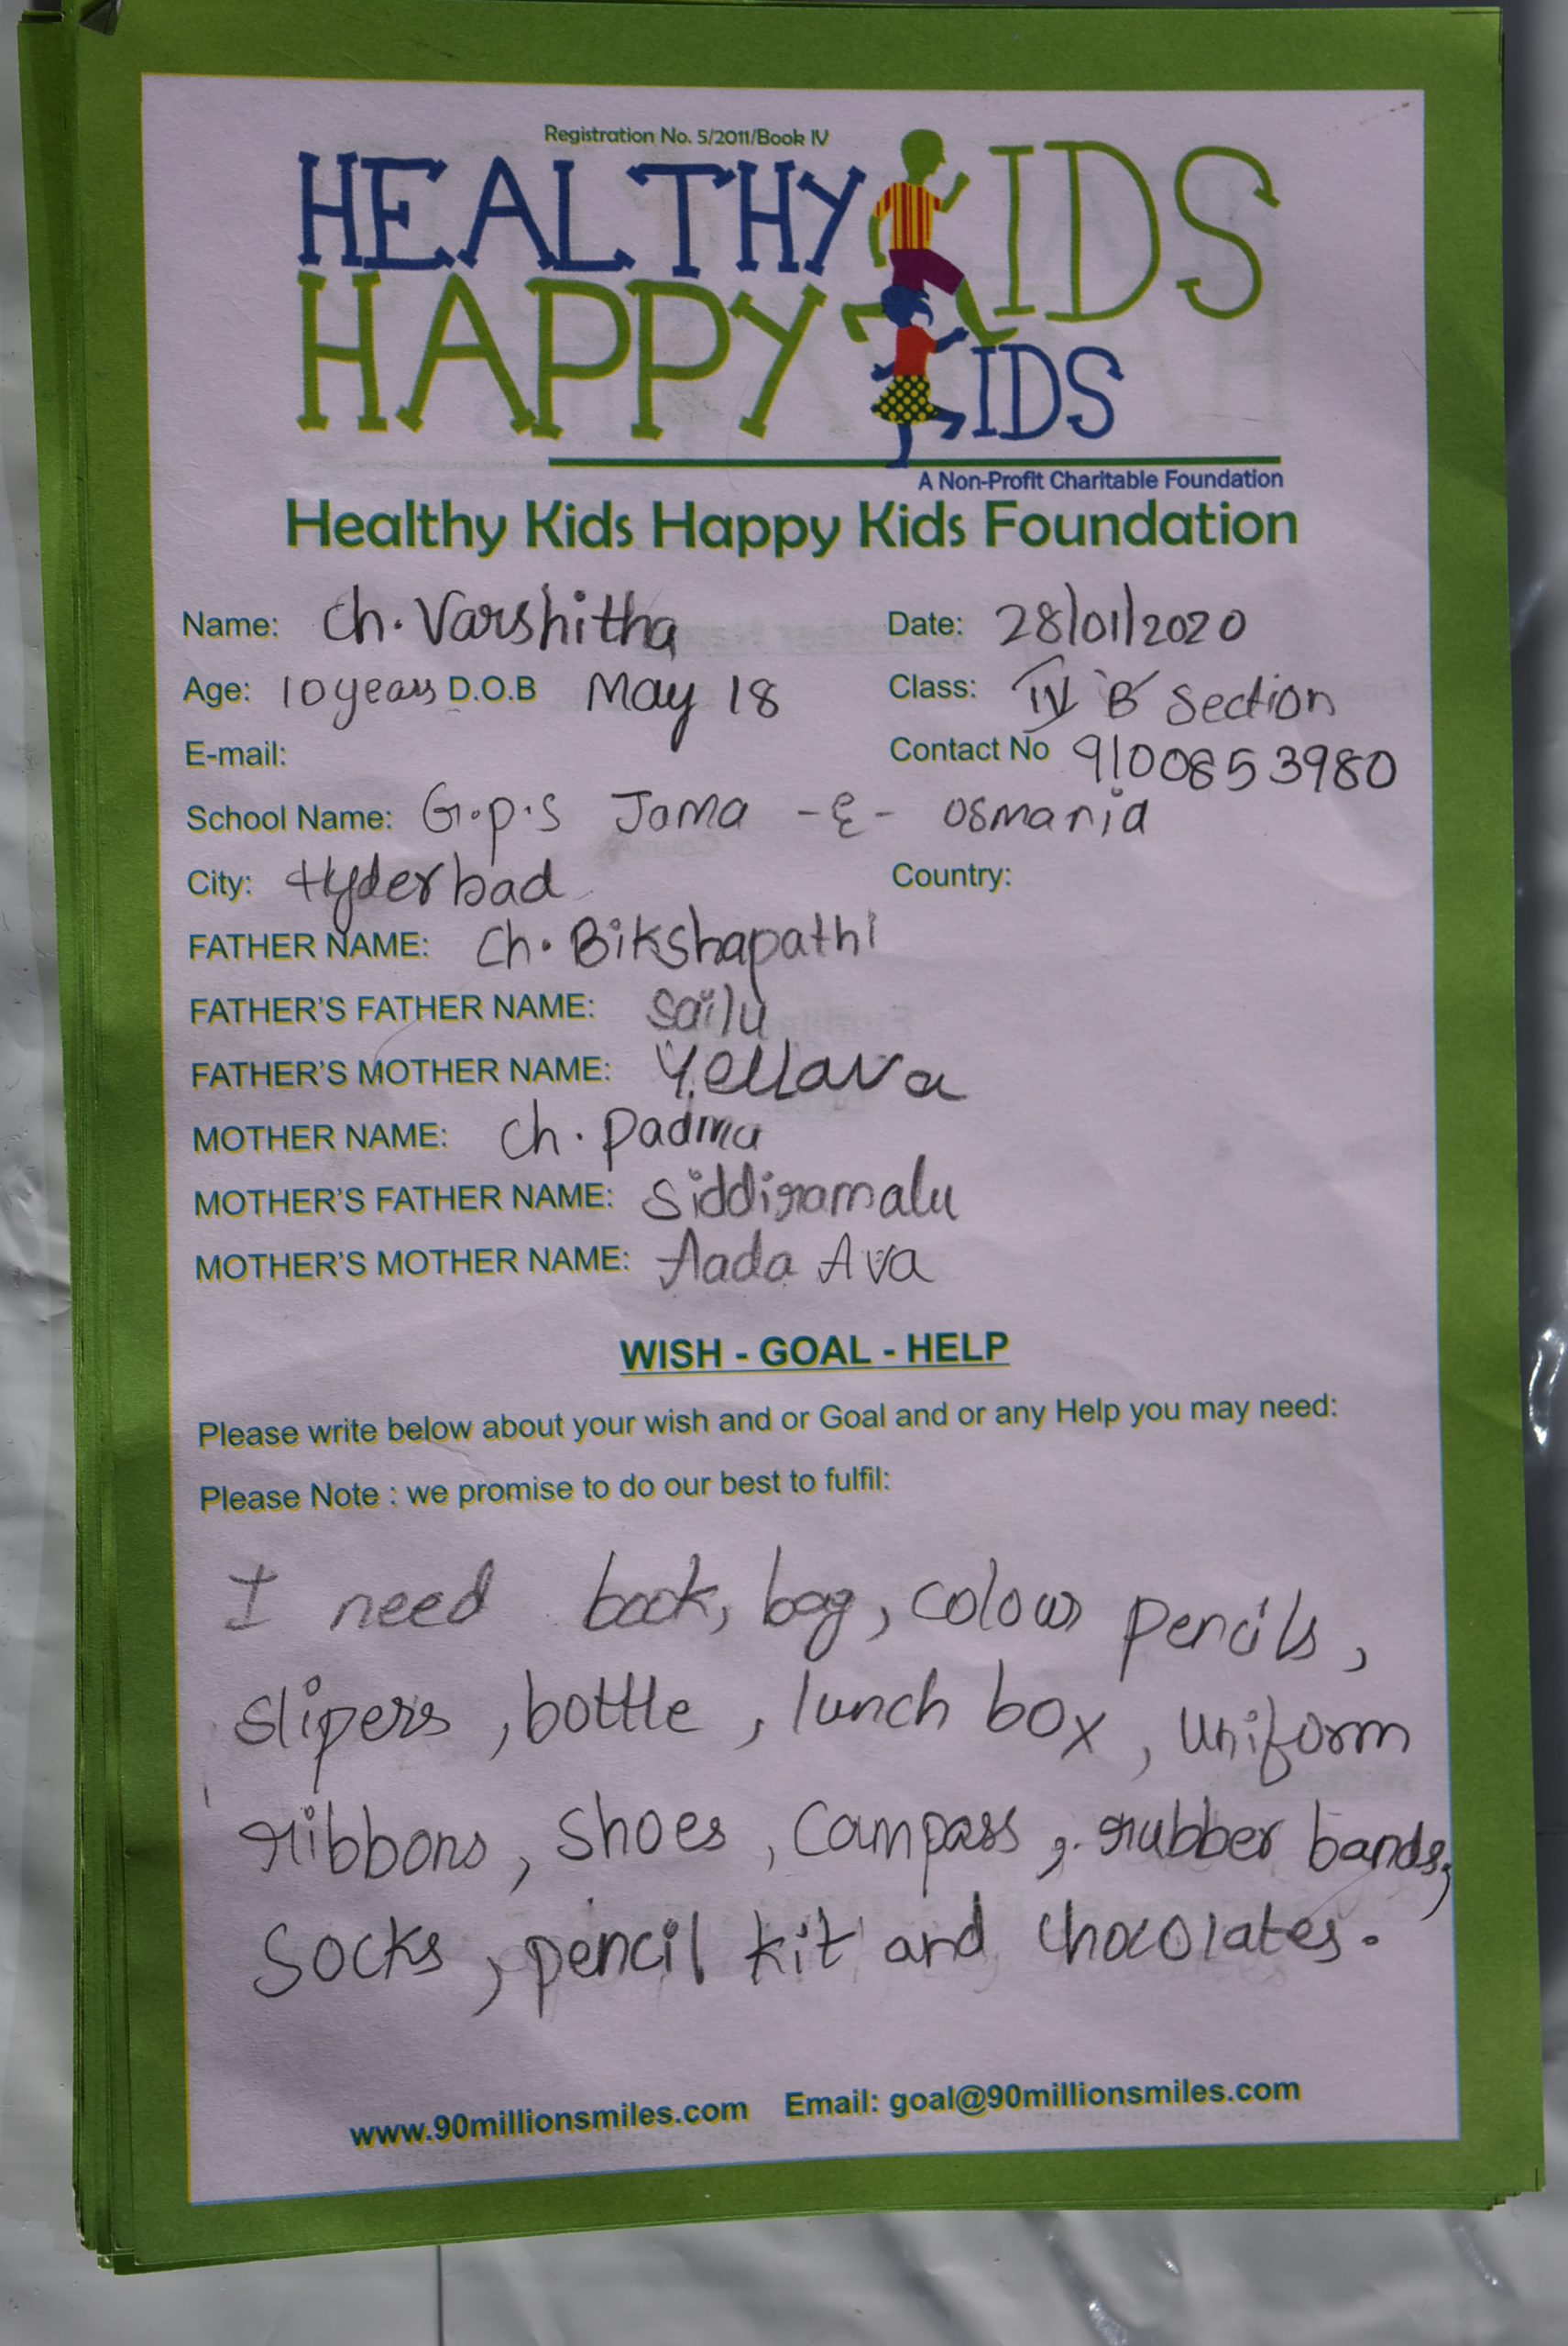 Registration No. 5/2011/Book IV
HEALTHY KIDS
HAPPY KIDS
A Non-Profit Charitable Foundation
Healthy Kids Happy Kids Foundation
Name: Ch. Varshitha Date: 28/01/2020
Age: 10 years D.O.B May 18 Class: IV 'B' Section
E-mail: Contact No 9100853980
School Name: G.P.S Jama -E- Osmania
City: Hyderbad Country:
FATHER NAME: Ch. Bikshapathi
FATHER'S FATHER NAME: Sailu
FATHER'S MOTHER NAME: Yellava
MOTHER NAME: Ch. Padma
MOTHER'S FATHER NAME: Siddiramalu
MOTHER'S MOTHER NAME: Aada Ava
WISH - GOAL - HELP
Please write below about your wish and or Goal and or any Help you may need:
Please Note : we promise to do our best to fulfil:
I need book, bag, colour pencils,
slipers, bottle, lunch box, uniform
ribbons, shoes, campass, rubber bands,
Socks, pencil kit and chocolates.
www.90millionsmiles.com Email: goal@90millionsmiles.com